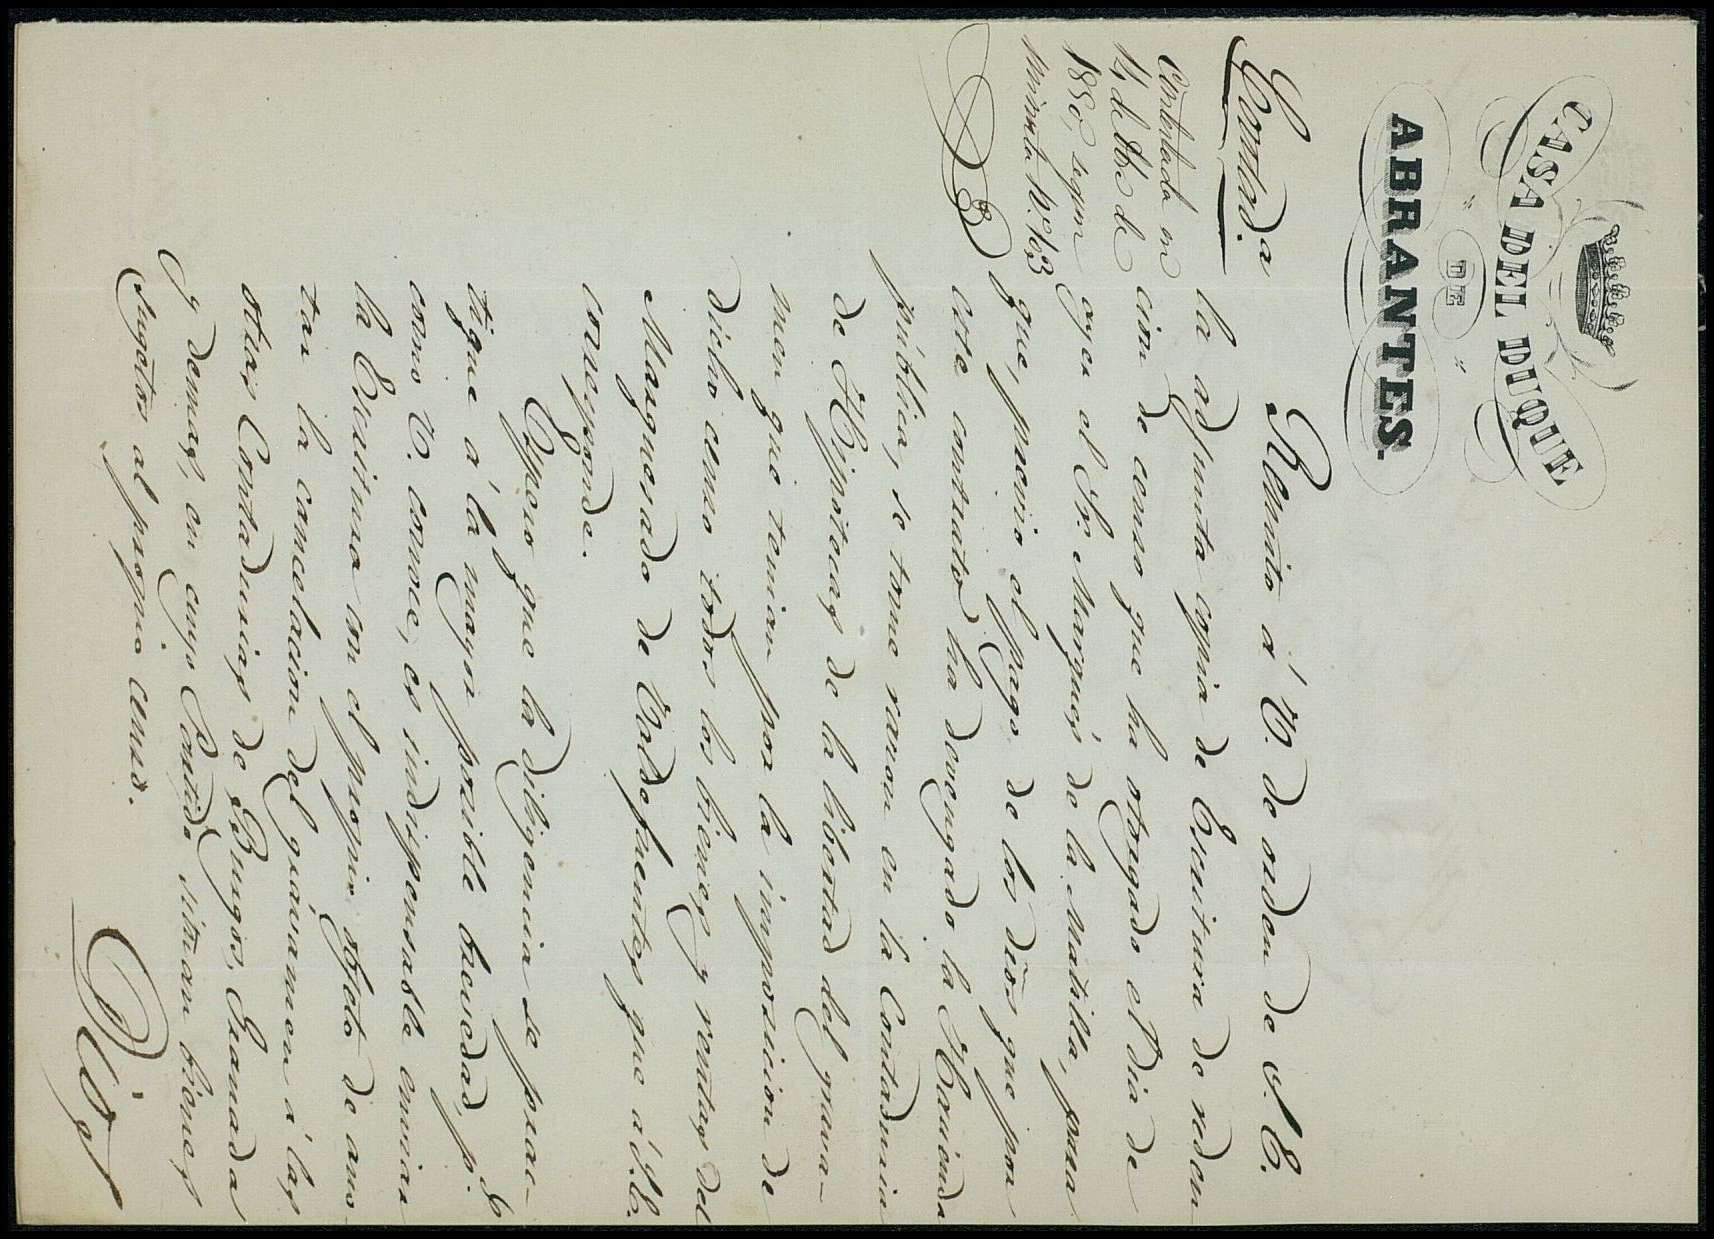 CASA DEL DUQUE
" DE "
ABRANTES.
Contad.a
Contestada en
14 de 8bre de
1850, segun
minuta N.º 163
Remito á V. de orden de S. E.
la adjunta copia de Escritura de reden
cion de censo que ha otorgado el dia de
oyer el Sr. Marqués de la Matilla, para
que, previo el pago de los dros que por
este contrato ha devengado la Hacienda
pública, se tome razon en la Contaduria
de Hipotecas de la libertad del grava-
men que tenian por la imposicion de
dicho censo todos los bienes y rentas del
Marquesado de Valdefuentes que á S.E.
corresponde.
Espero que la diligencia se prac-
tique á la mayor posible brevedad, p.s
como V. conoce, es indispensable enviar
la Escritura con el propio objeto de ano-
tar la cancelacion del gravamen á las
otras Contadurias de Burgos, Granada
y demas, en cuyo Partido sitúan bienes
sugetos al propio censo.
Dios